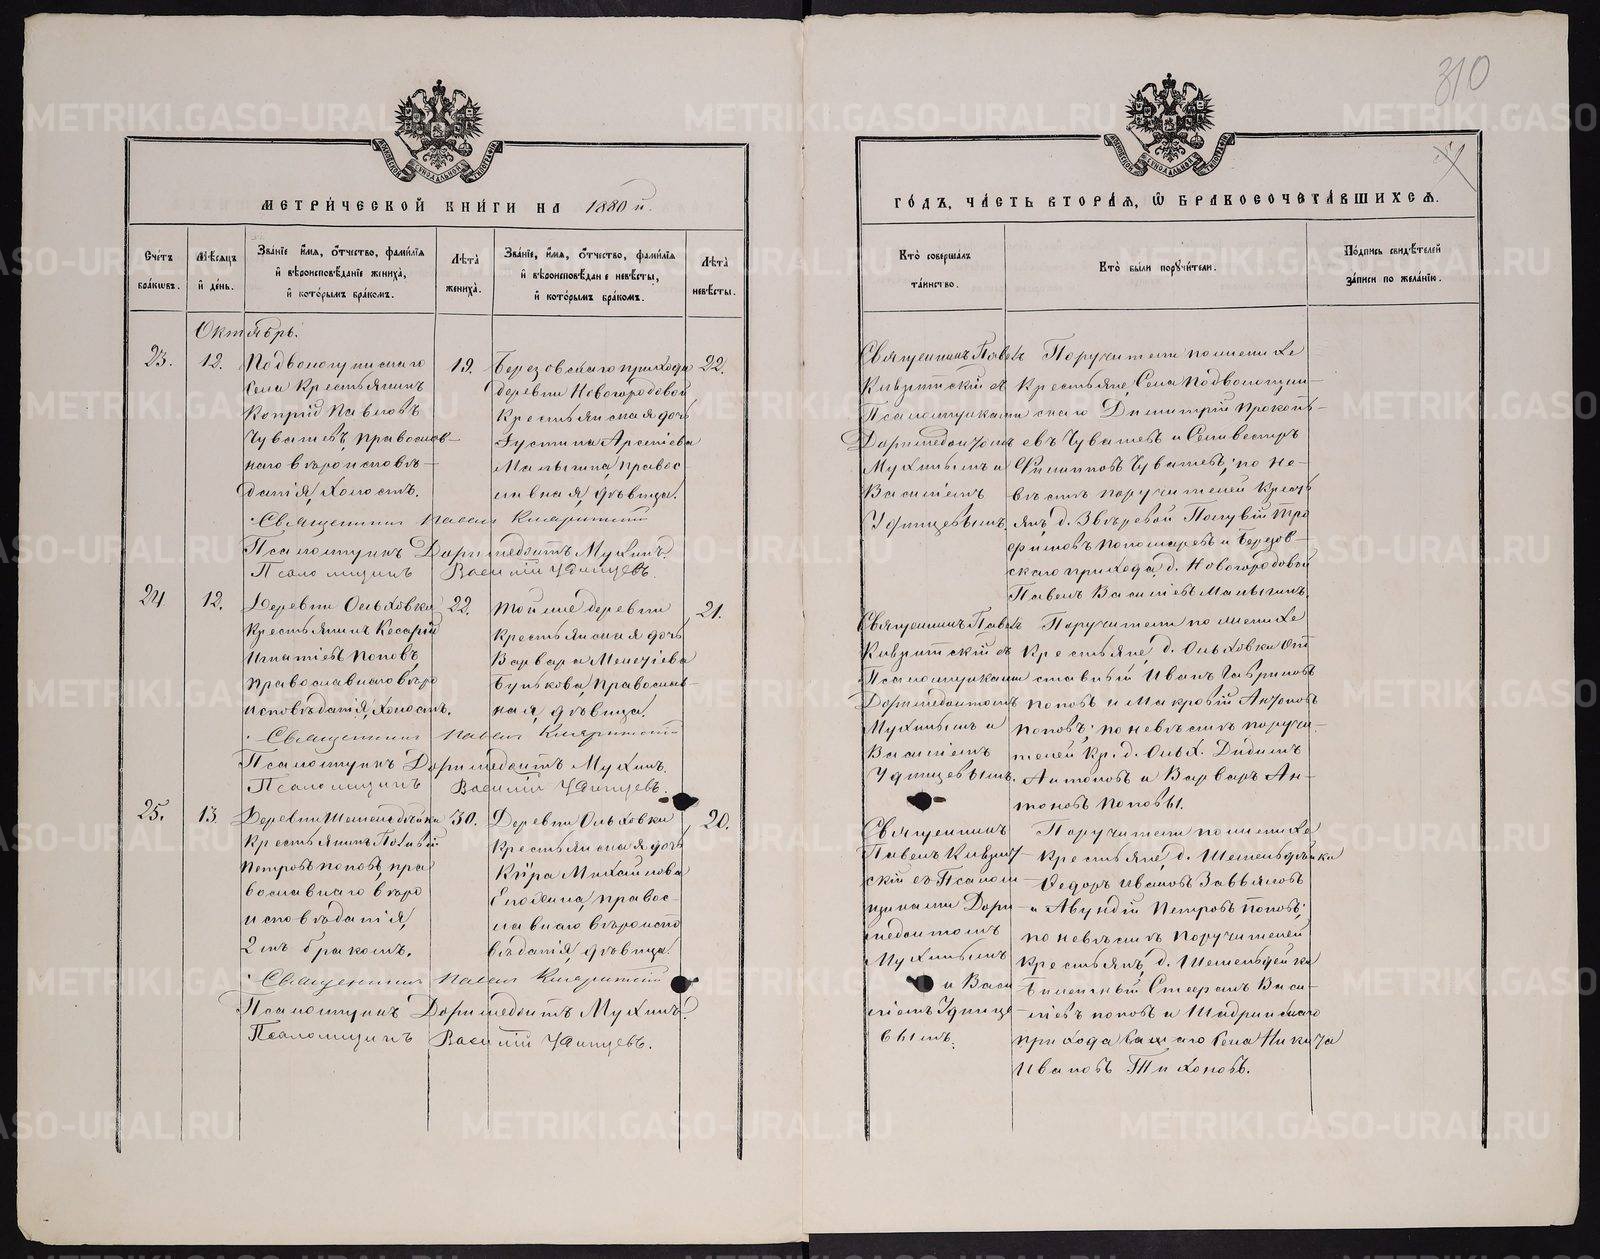 310
МЕТРИЧЕСКОЙ КНИГИ НА 1880 й.
Счетъ браковъ.
Мѣсяцъ и день.
Званіе, имя, отчество, фамилія и вѣроисповѣданіе жениха, и которымъ бракомъ.
Лѣта жениха.
Званіе, имя, отчество, фамилія и вѣроисповѣданіе невѣсты, и которымъ бракомъ.
Лѣта невѣсты.
Октябрь.
23. 12.
Подволошинскаго
Села Крестьянинъ
Павловъ
Чувашевъ, православ-
наго вѣроисповѣ-
данія, холостъ.
19.
Березовскаго прихода
деревни Новогородовой
Крестьянская дочь
Іустина Арсеніева
Малыгина, правос-
лавная, дѣвица.
22.
Священникъ Павелъ
Псаломщикъ Доримедонтъ Мухинъ.
Псаломщикъ Василій Удинцевъ.
24 12.
Деревни Ольховки
Крестьянинъ Кесарій
Игнатіевъ Поповъ,
православнаго вѣро
исповѣданія, холостъ.
22.
Той же деревни
крестьянская дочь
Варвара
Бунькова, Православ-
ная, дѣвица.
21.
Священникъ Павелъ
Псаломщикъ Доримедонтъ Мухинъ.
Псаломщикъ Василій Удинцевъ.
25. 13
Деревни
Крестьянинъ
Петровъ Поповъ, пра
вославнаго вѣро
исповѣданія,
2мъ бракомъ.
30.
Деревни Ольховки
крестьянская дочь
Кѵра Михайлова
правос-
лавнаго вѣроиспо
вѣданія, дѣвица.
20.
Священникъ Павелъ
Псаломщикъ Доримедонтъ Мухинъ.
Псаломщикъ Василій Удинцевъ.
ГОДЪ, ЧАСТЬ ВТОРАЯ, Ѡ БРАКОСОЧЕТАВШИХСЯ.
Кто совершалъ таинство.
Кто были поручители.
Подпись свидѣтелей записи по желанію.
Священникъ Павелъ
Псаломщиками
Доримедонтомъ
Мухинымъ и
Василіемъ
Удинцевымъ.
Поручители по женихѣ
Крестьяне, Села Подволошин-
скаго Димитрій Прокопь-
евъ Чувашевъ и Селивестръ
Филипповъ Чувашевъ; по не-
вѣстѣ поручителей Кресть
янъ д. Звѣревой
Пономаревъ и Березов-
скаго прихода, д. Новогородовой
Павелъ Василіевъ Малыгинъ.
Священникъ Павелъ
Псаломщиками
Доримедонтомъ
Мухинымъ и
Василіемъ
Удинцевымъ.
Поручители по женихѣ
Крестьяне, д. Ольховки От
ставный Иванъ Гавриловъ
Поповъ и
Поповъ; по невѣстѣ поручи-
телей Кр. д. Ольх. Дидимъ
Антоновъ и Ан-
тоновъ Поповы.
Священникъ
Павелъ
скій съ Псалом
щиками Дори
медонтомъ
Мухинымъ
и Васи
ліемъ Удинце
вымъ.
Поручители по женихѣ
Крестьяне, д.
Ѳедоръ Ивановъ Завьяловъ
и Петровъ Поповъ;
по невѣстѣ поручителей
Крестьянъ, д.
Васи-
ліевъ Поповъ и
прихода Села Никита
Ивановъ Тихоновъ.